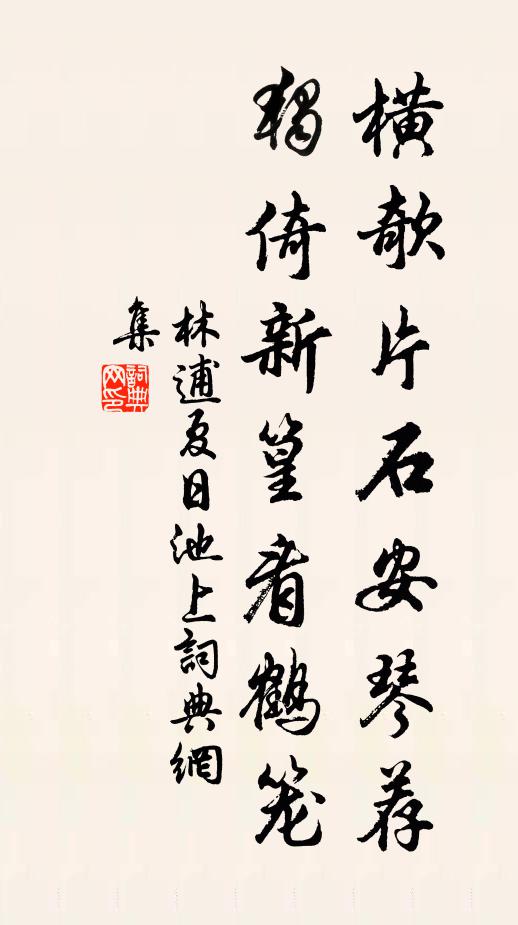 横欹片石安琴荐
独倚新篁看鹤笼
林逋夏日池上詞典網
集
詞典網印